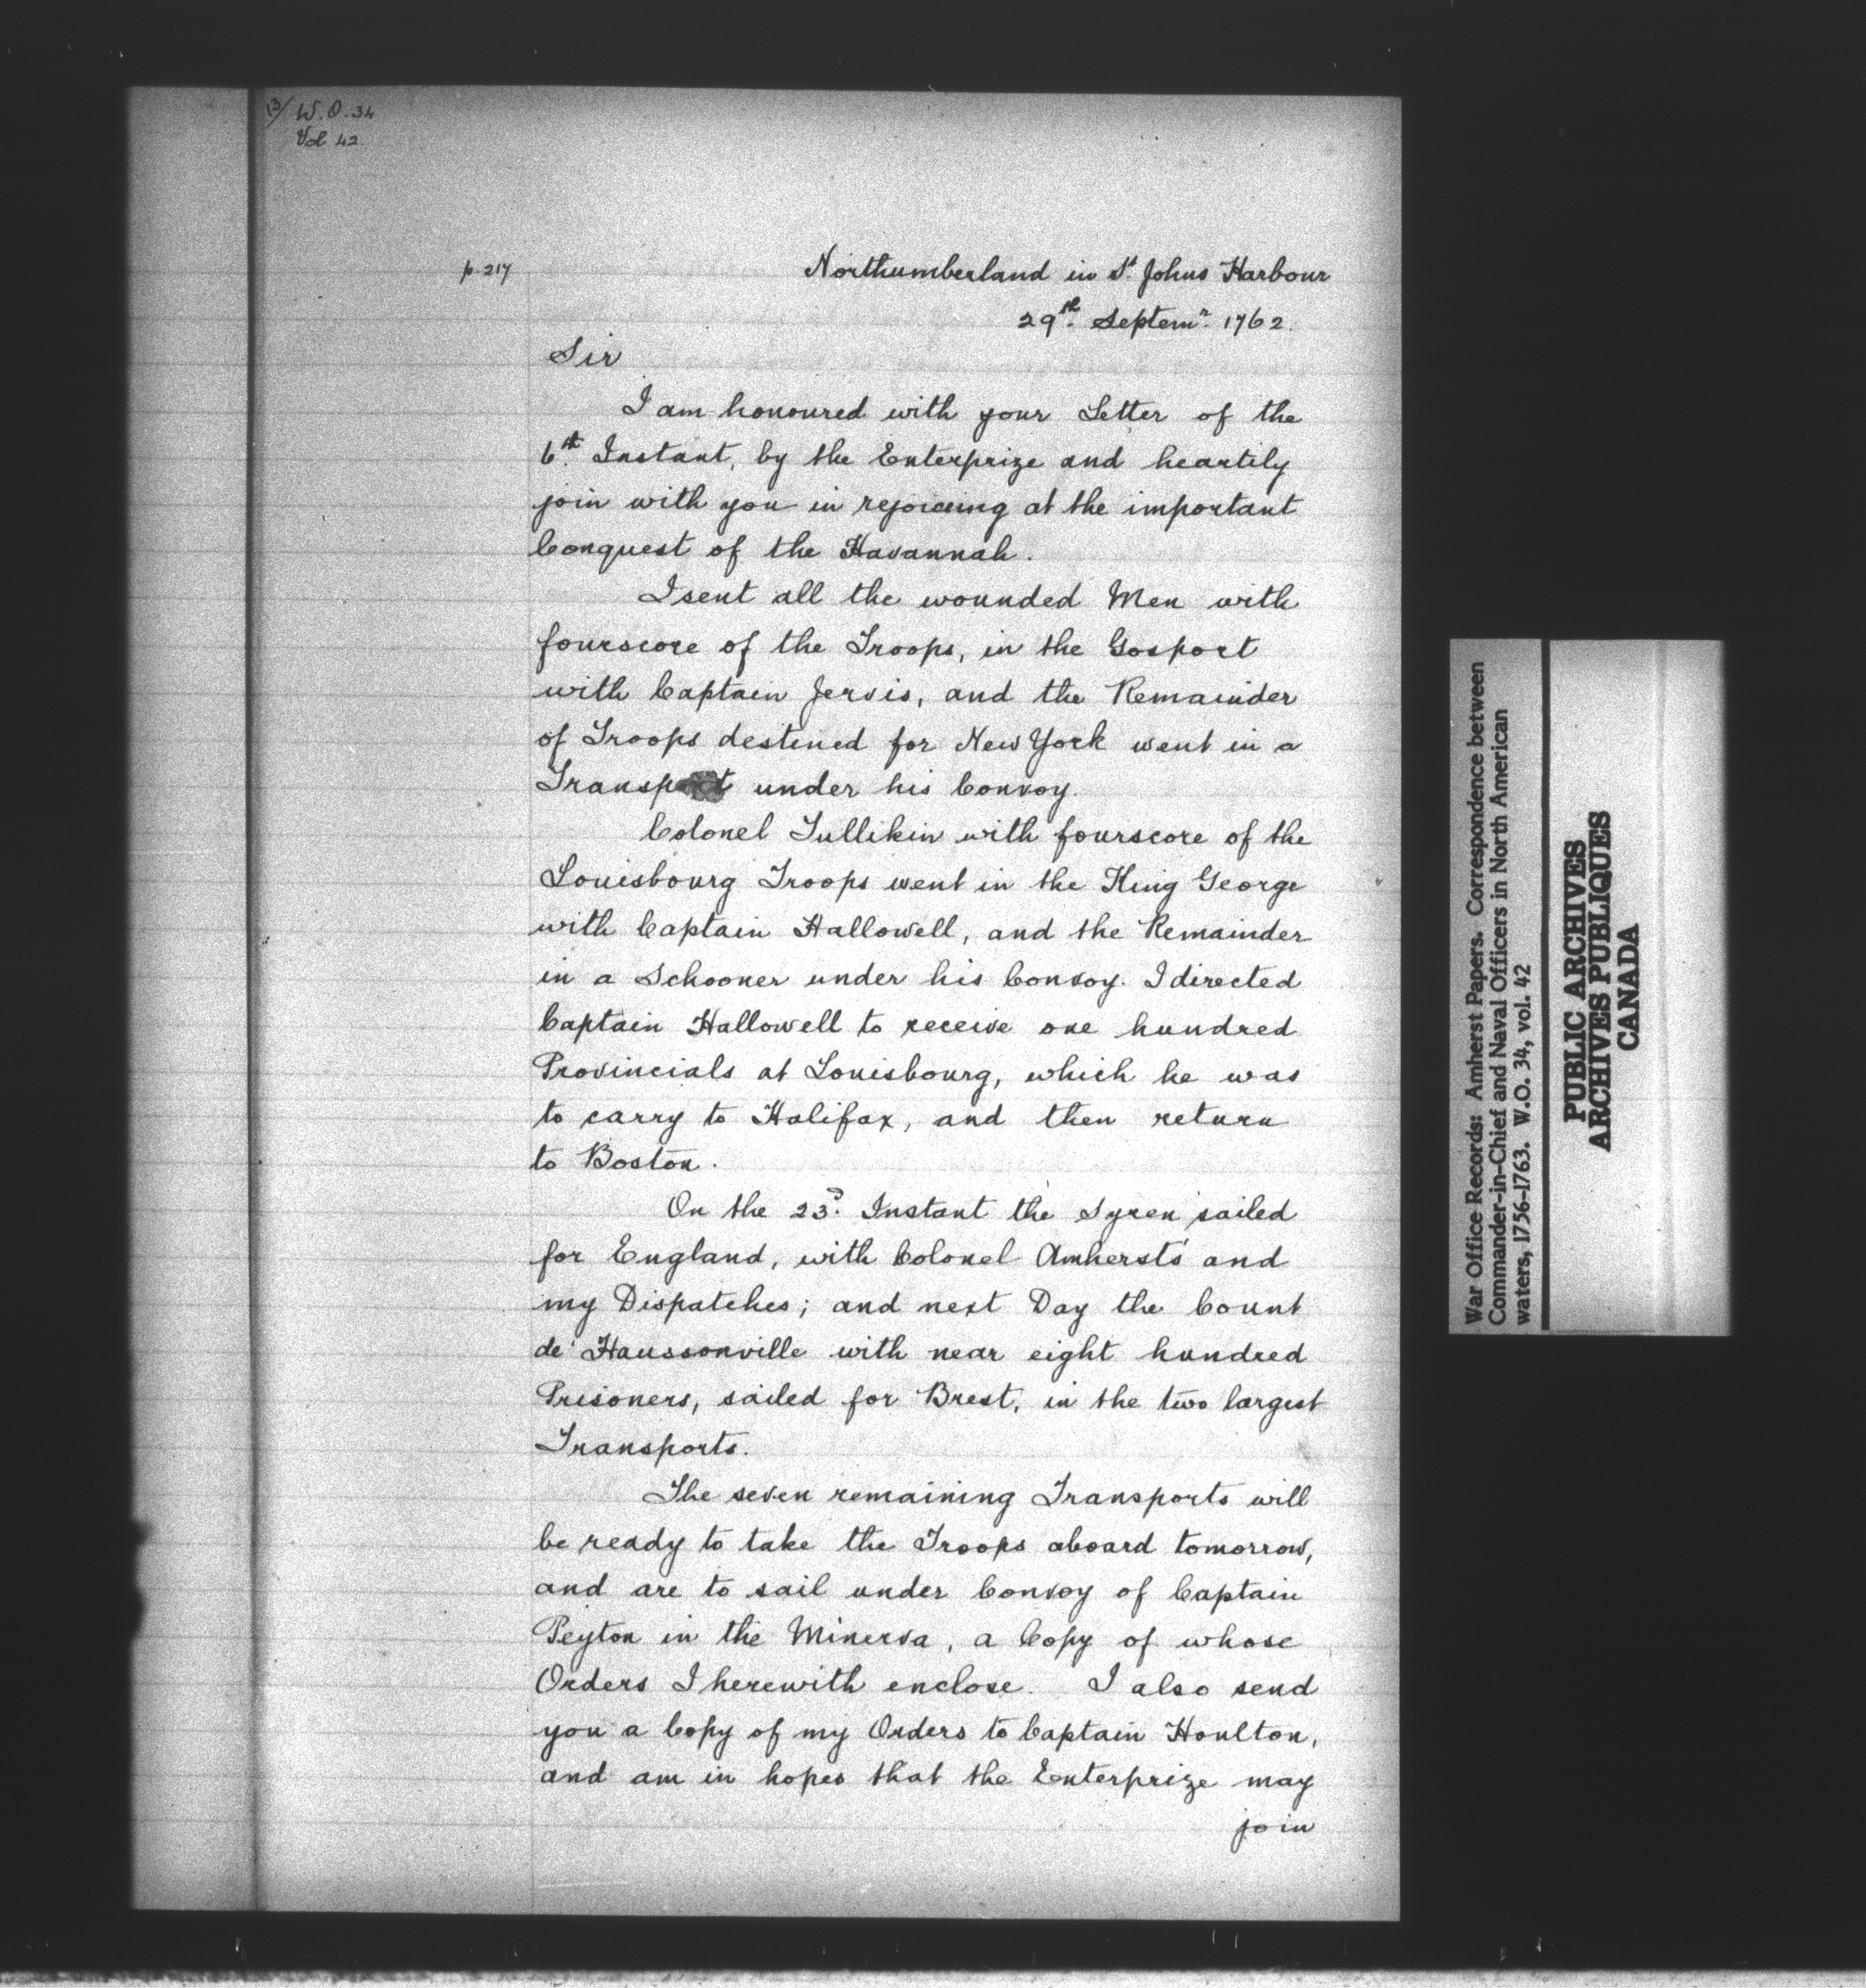 (3/ W.O. 34
Vol 42.
p. 217
Northumberland in St. Johns Harbour
29th. Septemr. 1762.
Sir
I am honoured with your Letter of the
6th. Instant, by the Enterprize and heartily
join with you in rejoicing at the important
Conquest of the Havannah.
I sent all the wounded Men with
fourscore of the Troops, in the Gosport
with Captain Jervis, and the Remainder
of Troops destined for New York went in a
Transport under his Convoy.
Colonel Tullikin with fourscore of the
Louisbourg Troops went in the King George
with Captain Hallowell, and the Remainder
in a Schooner under his Convoy. I directed
Captain Hallowell to receive one hundred
Provincials at Louisbourg, which he was
to carry to Halifax, and then return
to Boston.
On the 23d. Instant the Syren sailed
for England, with Colonel Amherst's and
my Dispatches; and next Day the Count
de Haussonville with near eight hundred
Prisoners, sailed for Brest, in the two largest
Transports.
The seven remaining Transports will
be ready to take the Troops aboard tomorrow,
and are to sail under Convoy of Captain
Peyton in the Minerva, a Copy of whose
Orders I herewith enclose. I also send
you a Copy of my Orders to Captain Houlton,
and am in hopes that the Enterprize may
join
War Office Records: Amherst Papers. Correspondence between
Commander-in-Chief and Naval Officers in North American
waters, 1756-1763. W.O. 34, vol. 42
PUBLIC ARCHIVES
ARCHIVES PUBLIQUES
CANADA